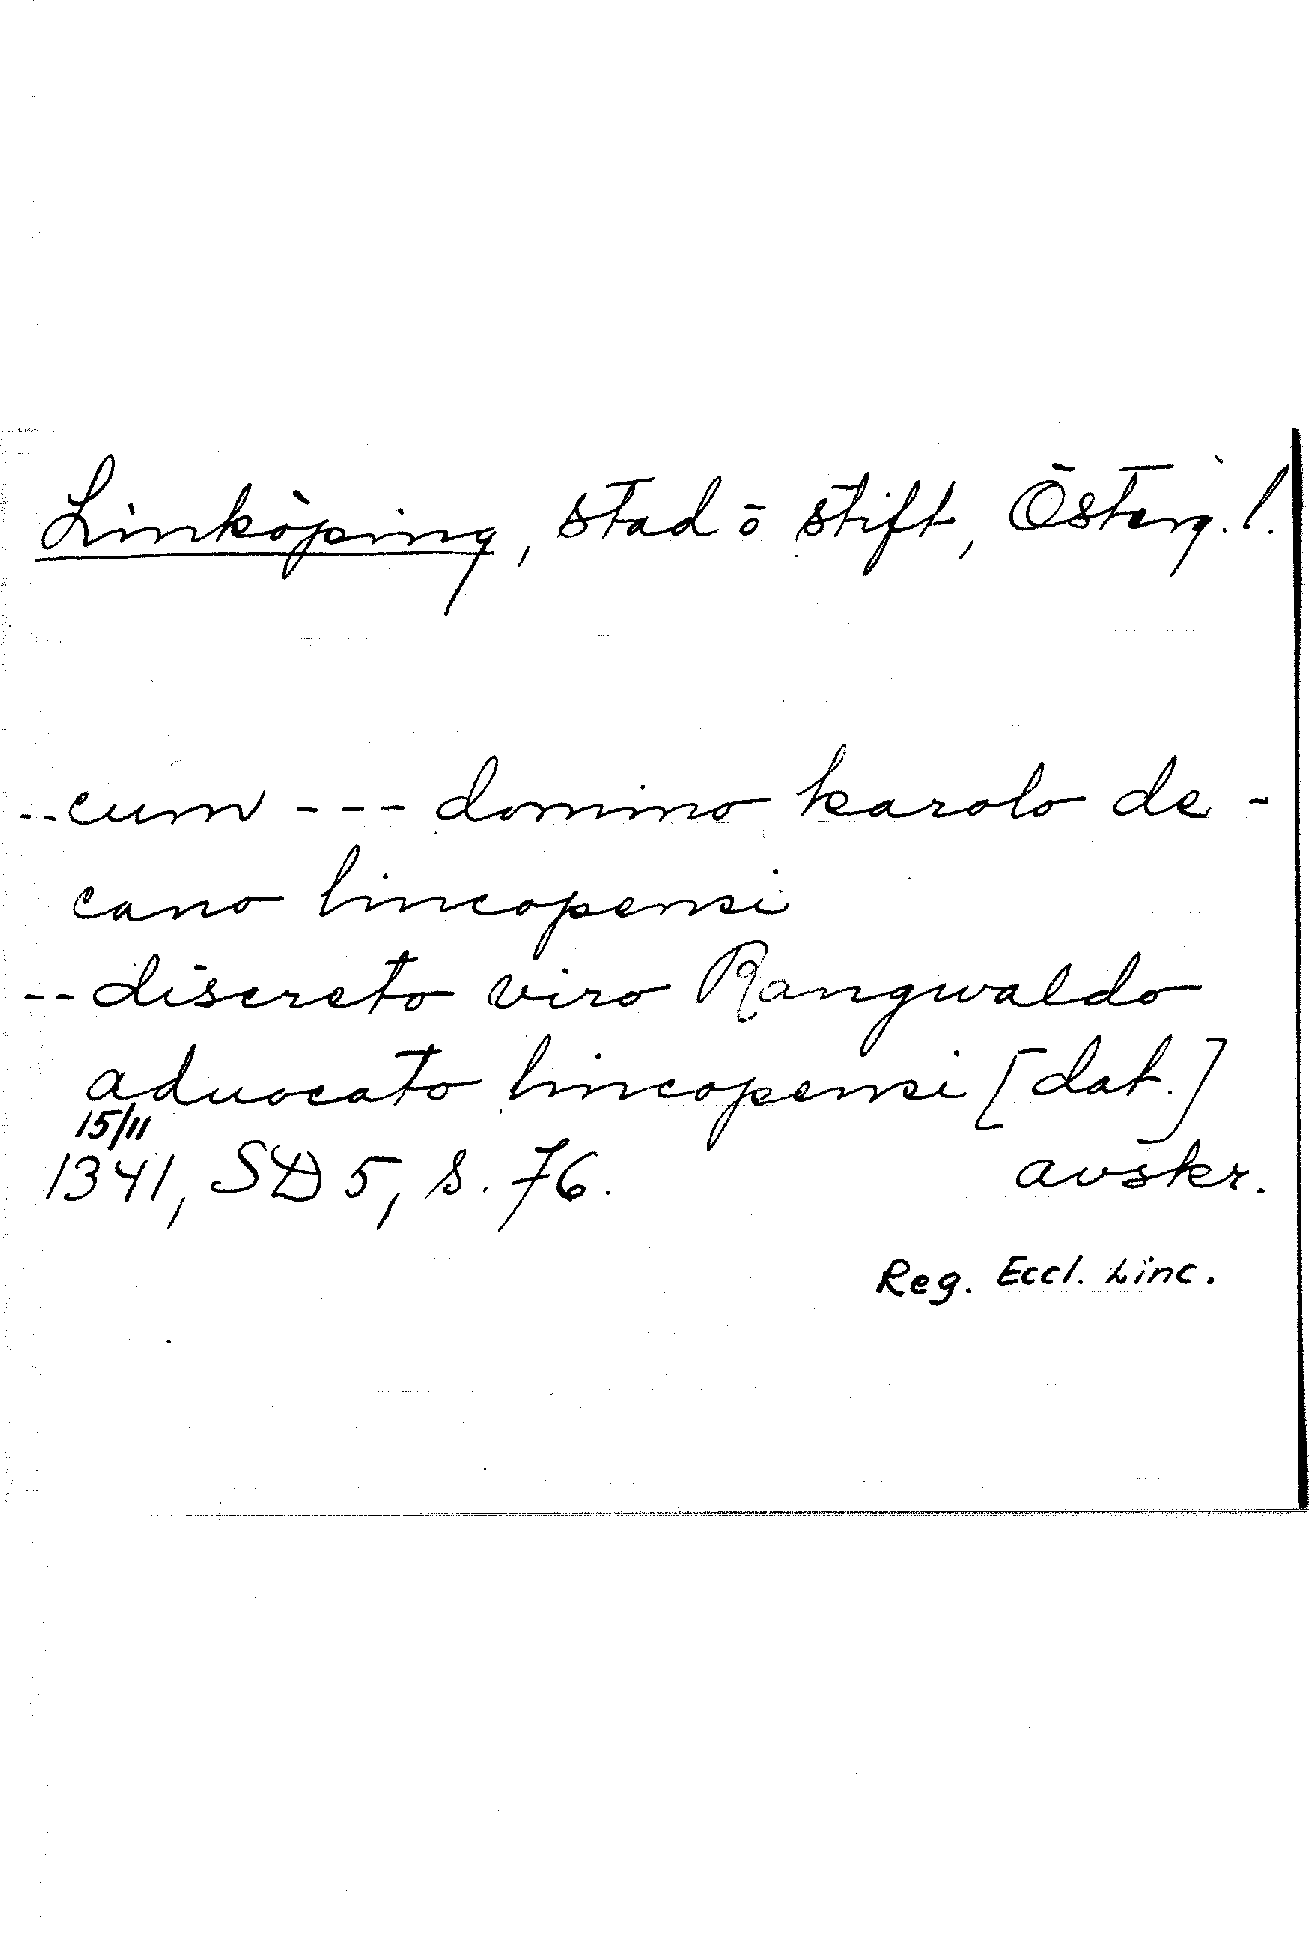 Linköping, stad o stift, Österg. l.
-- cum --- domino karolo de-
cano lincopensi
-- discreto viro Rangwaldo
aduocato lincopensi [dat.]
15/11
1341, SD 5, s. 76. avskr.
Reg. Eccl. Linc.